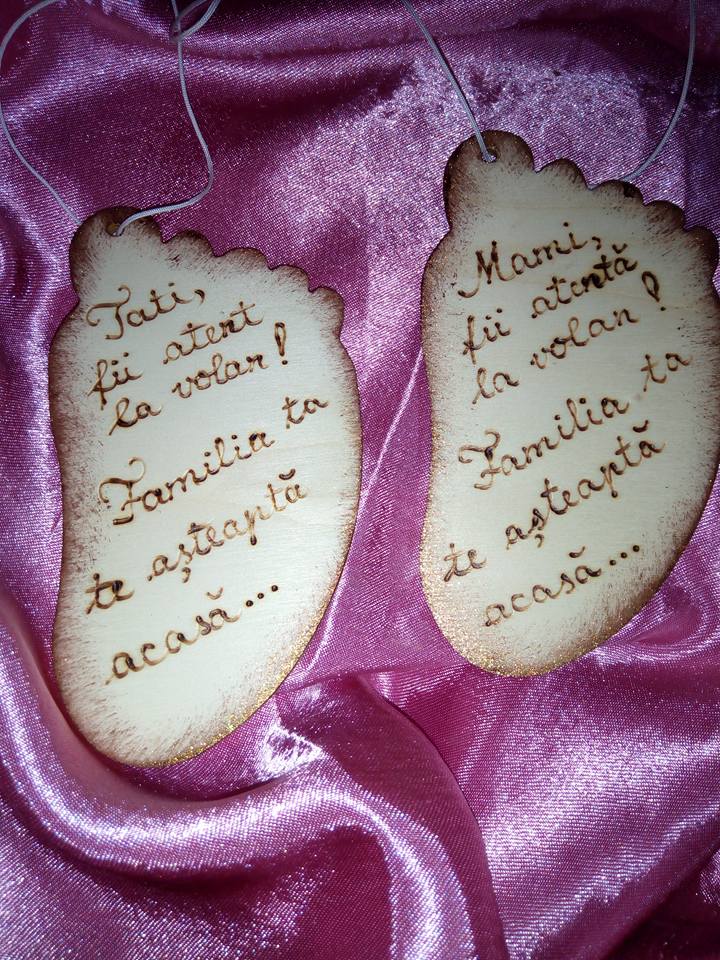 Tati,
fii atent
la volan!
Familia ta
te așteaptă
acasă...
Mami,
fii atentă
la volan!
Familia ta
te așteaptă
acasă...